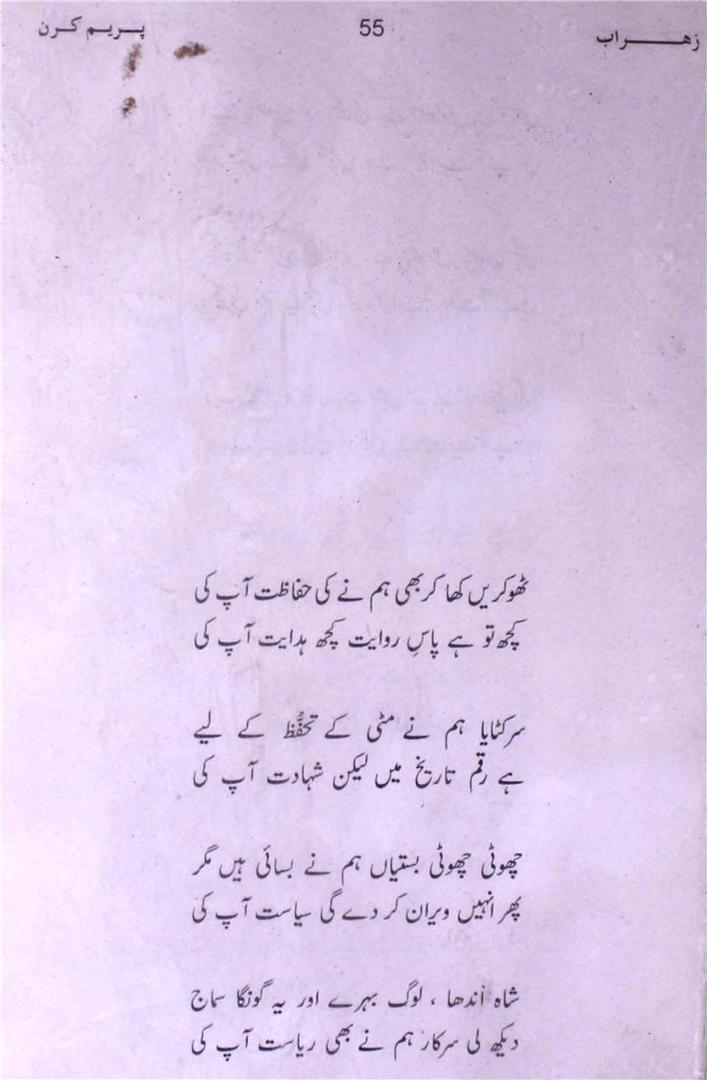 زھراب 55 پریم کرن
ٹھوکریں کھا کر بھی ہم نے کی حفاظت آپ کی
کچھ تو ہے پاسِ روایت کچھ ہدایت آپ کی
سر کٹایا ہم نے مٹی کے تحفُّظ کے لیے
ہے رقم تاریخ میں لیکن شہادت آپ کی
چھوٹی چھوٹی بستیاں ہم نے بسائی ہیں مگر
پھر انہیں ویران کر دے گی سیاست آپ کی
شاہ اندھا ، لوگ بہرے اور یہ گونگا سماج
دیکھ لی سرکار ہم نے بھی ریاست آپ کی